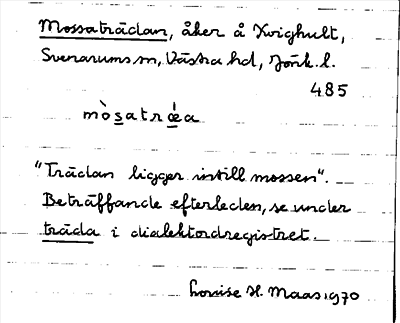 Mossaträdan, åker å Kvighult,
Svenarums sn, Västra hd, Jönk. l.
485
mòsatrǽa
"Trädan ligger intill mossen".
Beträffande efterleden, se under
träda i dialektordregistret.
Louise H. Maas 1970